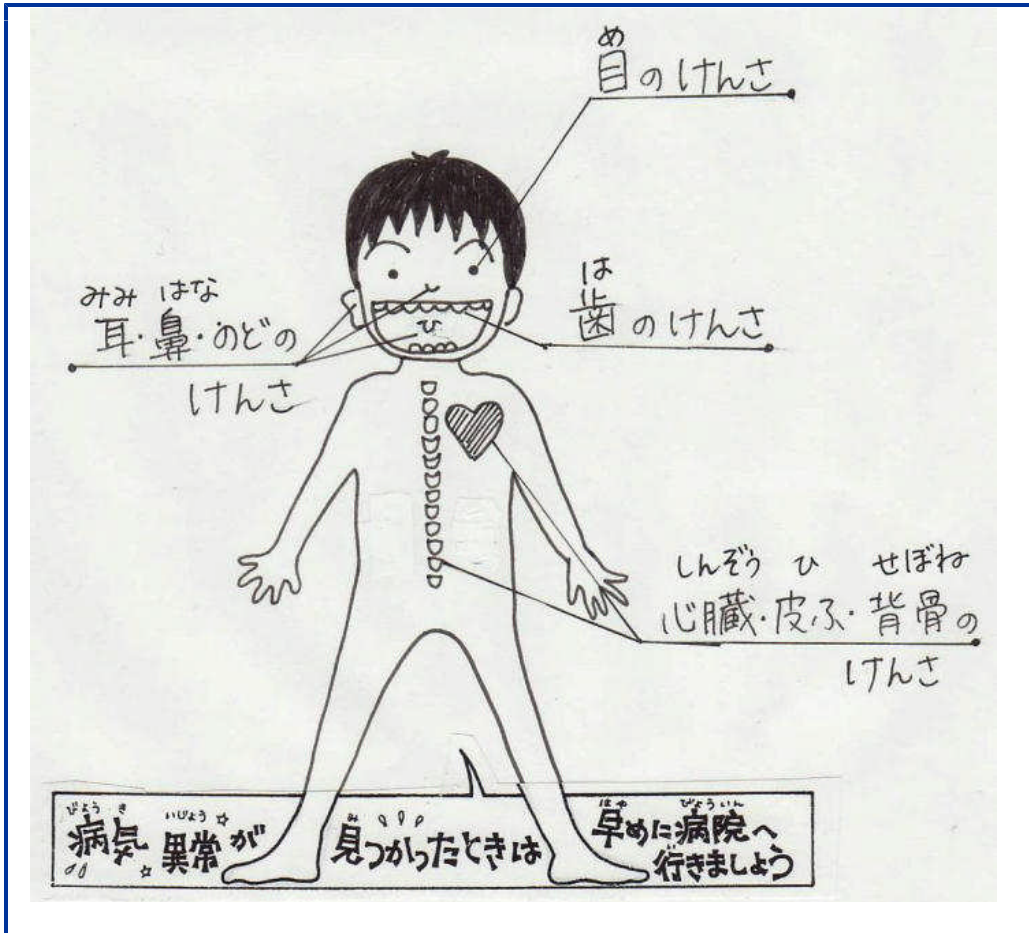 め
目のけんさ
は
歯のけんさ
みみ はな
耳・鼻・のどの
けんさ
ひ
しんぞう ひ せぼね
心臓・皮ふ・背骨の
けんさ
びょうき いじょう
病気 異常が
み
見つかったときは
はや びょういん
早めに病院へ
行きましょう